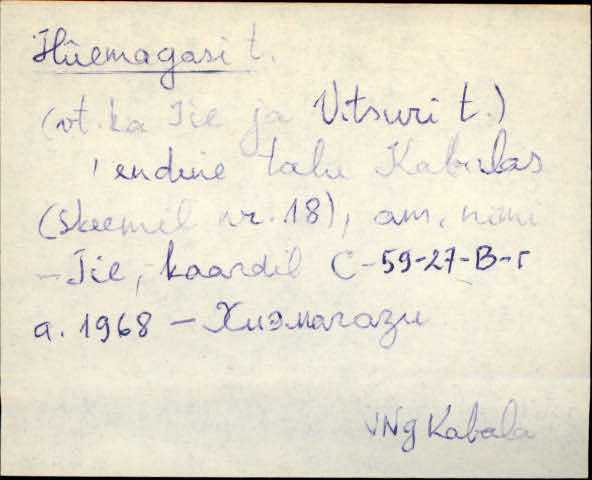 Hüemagasi t.
(vt. ka Iie ja Vitsuri t.)
endine talu Kabalas
(skeemil nr. 18), am. nimi
- Iie, - kaardil C-59-27-B-г
a. 1968 - Хиэмагази
VNg Kabala